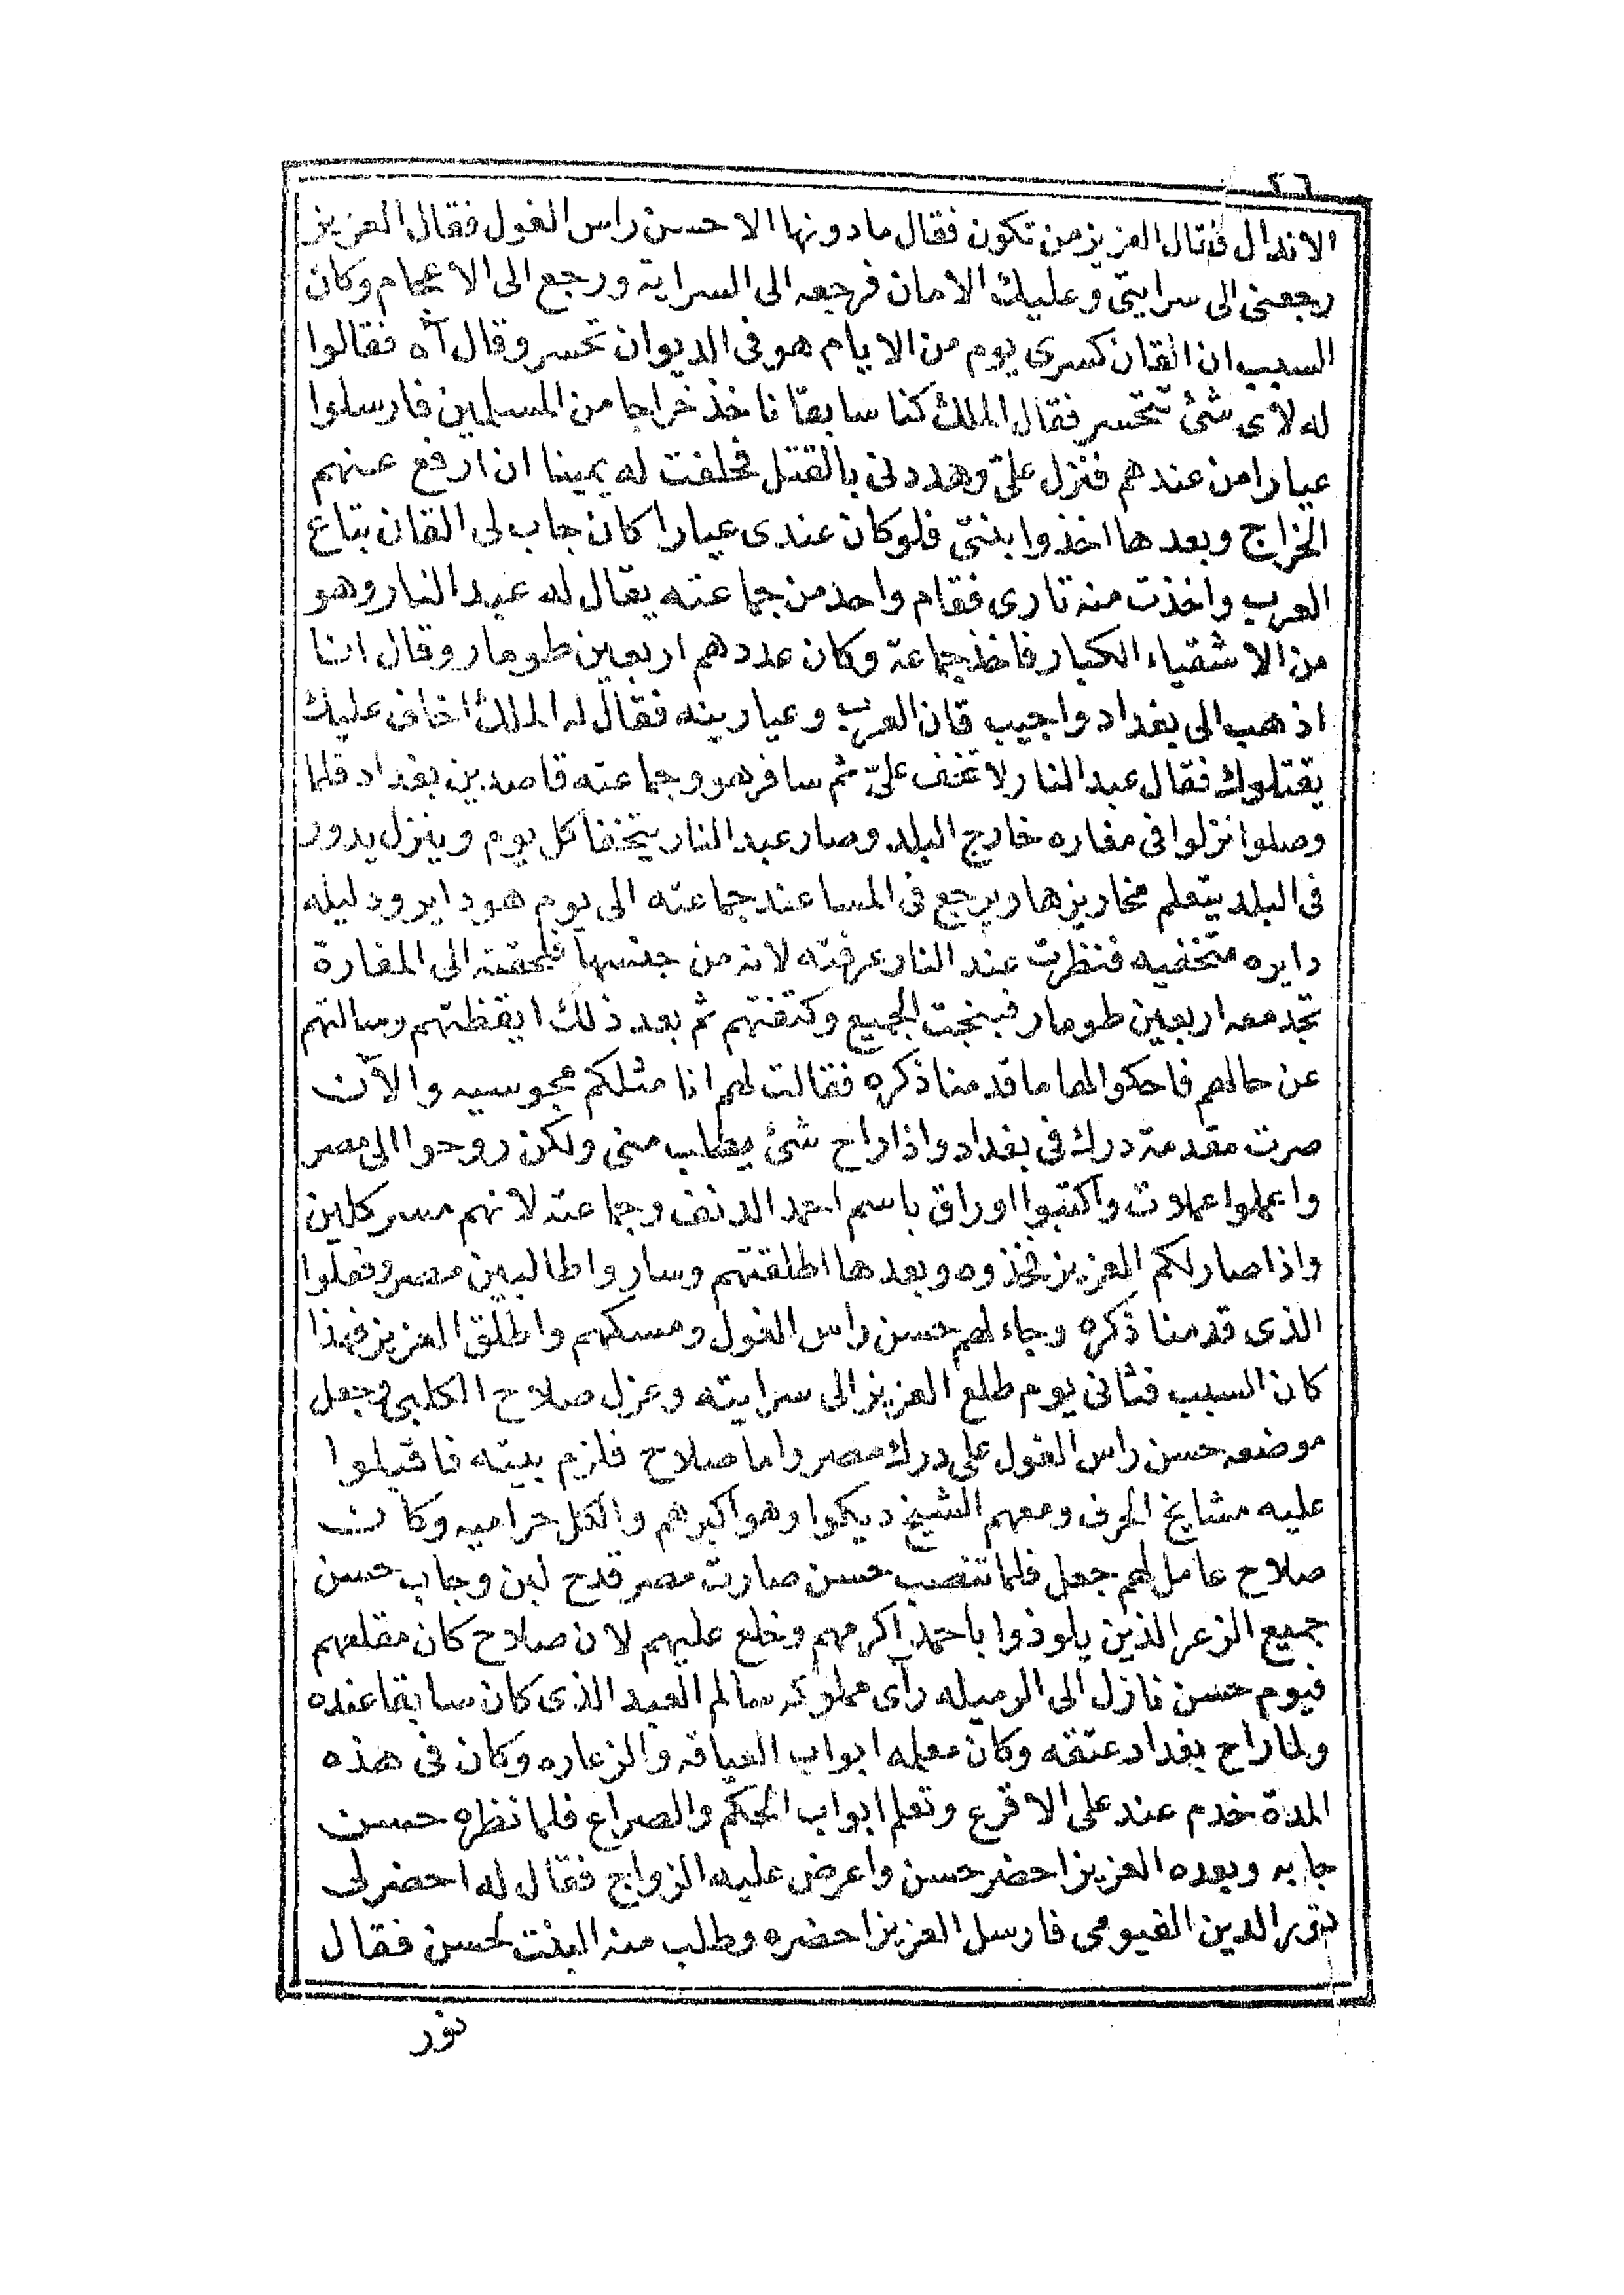 ٢٦
الاندال فقال العزيز من تكون فقال ما دونها الا حسن راس الغول فقال العزيز
رجعنى الى سرايتى وعليك الامان فرجعه الى السرايه ورجع الى الاعجام وكان
السبب ان القان كسرى يوم من الايام هو فى الديوان تحسر وقال آه فقالوا
له لأى شئ تتحسر فقال الملك كنا سابقا ناخذ خراجا من المسلمين فارسلوا
عيارا من عندهم فنزل علىّ وهددنى بالقتل فحلفت له يمينا ان ارفع عنهم
الخراج وبعدها اخذوا بنتى فلو كان عندى عيارا كان جاب لى القان بتاع
العرب واخذت منه تارى فقام واحد من جماعته يقال له عبد النار وهو
من الاشقياء الكبار فاخذ جماعة وكان عددهم اربعين طومار وقال انا
اذهب الى بغداد واجيب قان العرب وعيارينه فقال له الملك اخاف عليك
يقتلوك فقال عبد النار لا تخف علىّ ثم سافر هو وجماعته قاصدين بغداد فلما
وصلوا نزلوا فى مغاره خارج البلد وصار عبد النار يتخفا كل يوم وينزل يدور
فى البلد يتعلم مخاريزها ويرجع فى المسا عند جماعته الى يوم هو داير ودليله
دايره متخفيه فنظرت عبد النار عرفته لانه من جنسها فلحقته الى المغارة
تجد معه اربعين طومار فبنجت الجميع وكتفتهم ثم بعد ذلك ايقظتهم وسالتهم
عن حالهم فاحكوا لها ما قدمنا ذكره فقالت لهم انا مثلكم مجوسيه والآن
صرت مقدمة درك فى بغداد واذا راح شئ يطلب منى ولكن روحوا الى مصر
واعملوا عملات واكتبوا اوراق باسم احمد الدنف وجماعته لانهم مسركلين
واذا صار لكم العزيز فخذوه وبعدها اطلقتهم وساروا طالبين مصر وفعلوا
الذى قدمنا ذكره وجاء لهم حسن راس الغول ومسكهم واطلق العزيز فهذا
كان السبب فثانى يوم طلع العزيز الى سرايته وعزل صلاح الكلبى وجعل
موضعه حسن راس الغول على درك مصر واما صلاح فلزم بيته فاقبلوا
عليه مشايخ الحرف ومعهم الشيخ ديكوا وهو اكبرهم والكل حراميه وكان
صلاح عامل لهم جعل فلما تنصب حسن صارت مصر قدح لبن وجاب حسن
جميع الزعر الذين يلوذوا باحمد اكرمهم وخلع عليهم لان صلاح كان مقلعهم
فيوم حسن نازل الى الرميله رآى مملوكه سالم العبد الذى كان سابقا عنده
ولما راح بغداد عتقه وكان معلمه ابواب العياقه والزعاره وكان فى هذه
المدة خدم عند على الاقرع وتعلم ابواب الحكم والصراع فلما نظره حسن
جابه وبعده العزيز احضر حسن واعرض عليه الزواج فقال له احضر لى
نور الدين الفيومى فارسل العزيز احضره وطلب منه البنت لحسن فقال
نور